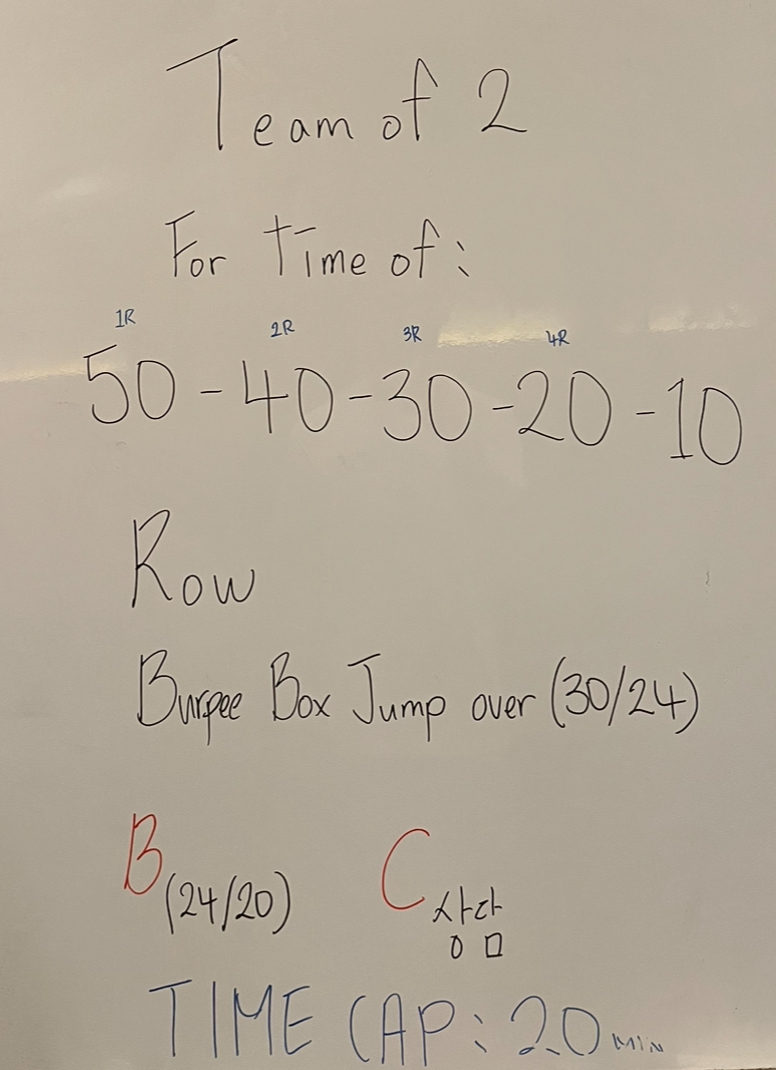 Team of 2
For Time of:
1R 2R 3R 4R
50-40-30-20-10
Row
Burpee Box Jump over (30/24)
B (24/20) C 상담
TIME CAP: 20 min